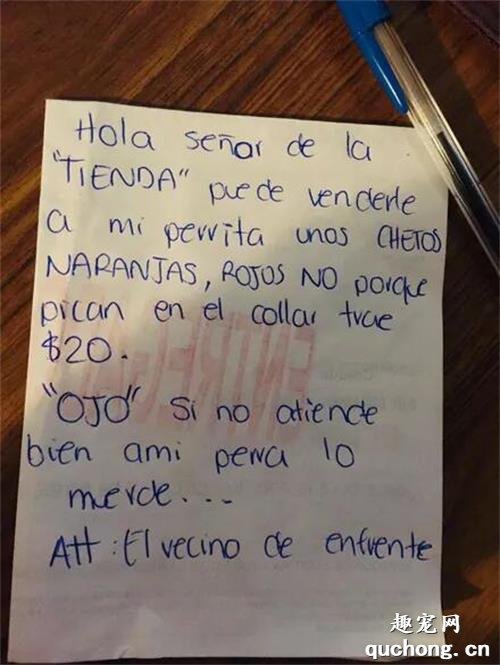 Hola señor de la
"TIENDA" puede venderle
a mi perrita unos CHETOS
NARANJAS, ROJOS NO porque
pican en el collar trae
$20.
"OJO" Si no atiende
bien ami perra lo
muerde....
Att: El vecino de enfrente
ENTREGADO
趣宠网
quchong.cn